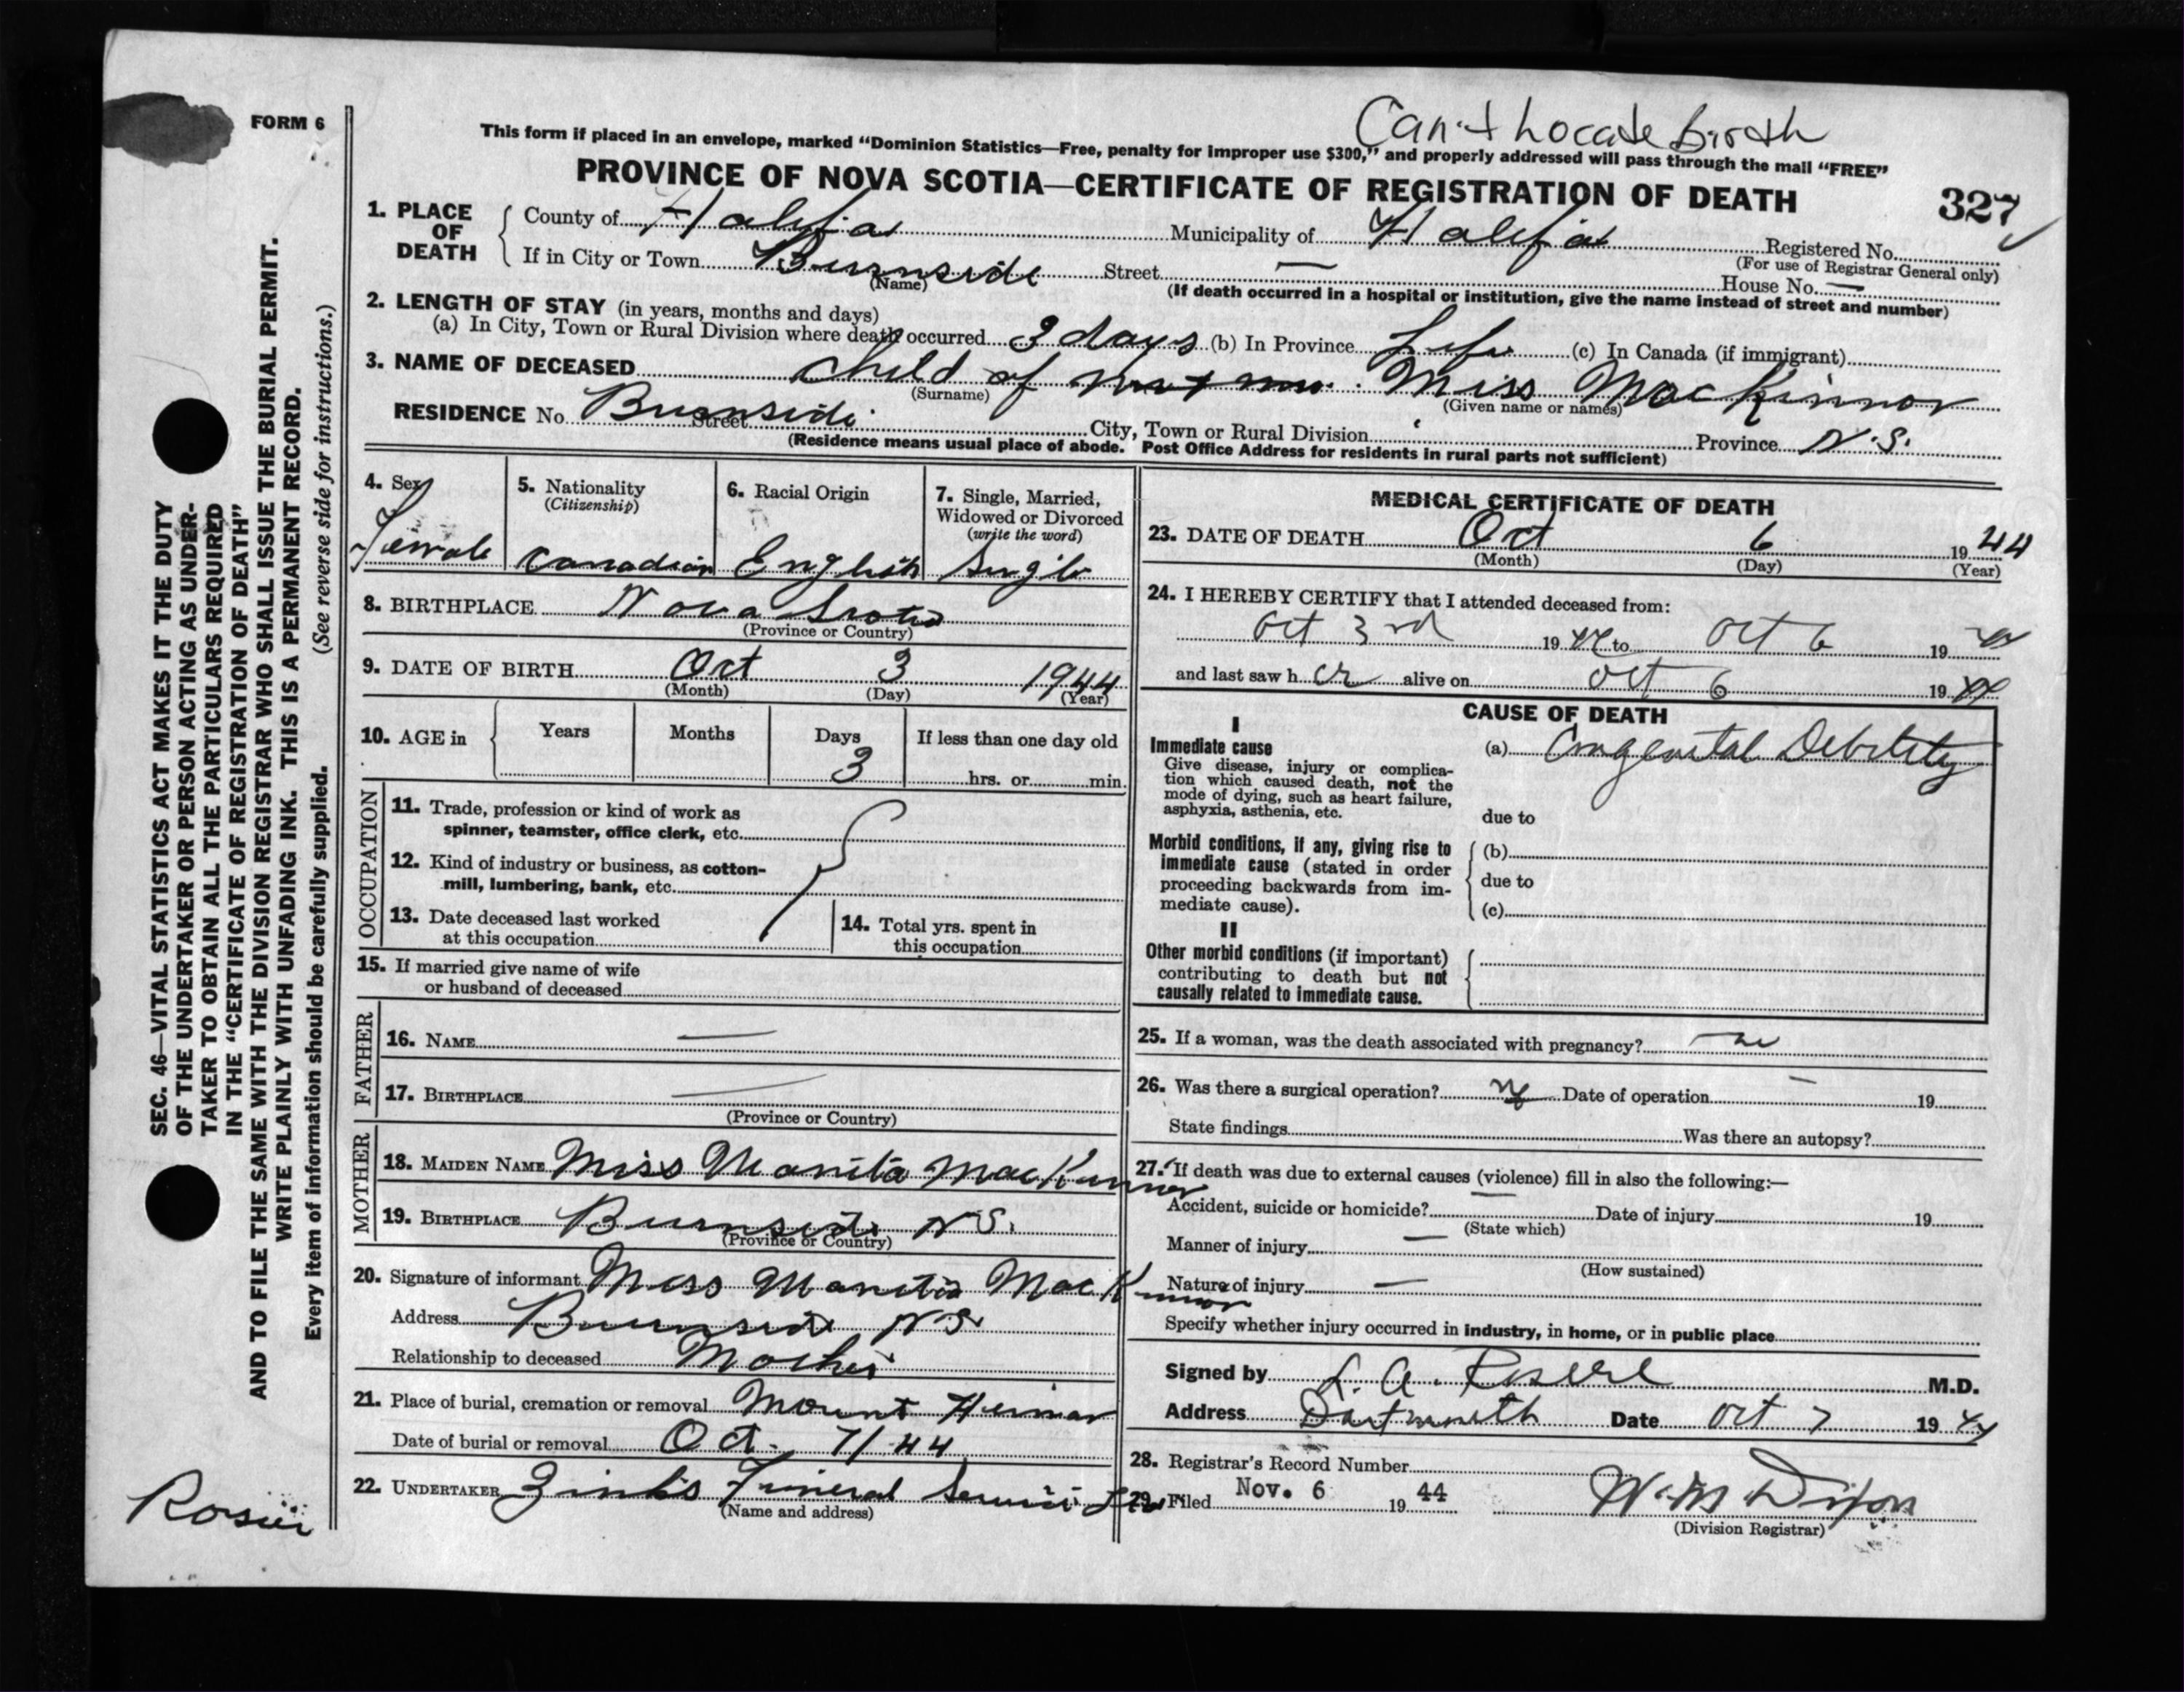 Can't Locate Birth
FORM 6
This form if placed in an envelope, marked "Dominion Statistics—Free, penalty for improper use $300," and properly addressed will pass through the mail "FREE"
PROVINCE OF NOVA SCOTIA—CERTIFICATE OF REGISTRATION OF DEATH
327
1. PLACE OF DEATH
County of Halifax Municipality of Halifax Registered No.
(For use of Registrar General only)
If in City or Town Burnside Street — House No. —
(Name) (If death occurred in a hospital or institution, give the name instead of street and number)
2. LENGTH OF STAY (in years, months and days)
(a) In City, Town or Rural Division where death occurred 3 days (b) In Province Life (c) In Canada (if immigrant)
3. NAME OF DECEASED child of Miss MacKinnon
(Surname) (Given name or names)
RESIDENCE No. Burnside Street City, Town or Rural Division Province N.S.
(Residence means usual place of abode. Post Office Address for residents in rural parts not sufficient)
4. Sex Female
5. Nationality (Citizenship) Canadian
6. Racial Origin English
7. Single, Married, Widowed or Divorced (write the word) Single
8. BIRTHPLACE Nova Scotia
(Province or Country)
9. DATE OF BIRTH Oct 3 1944
(Month) (Day) (Year)
10. AGE in Years Months Days 3 If less than one day old
hrs. or min.
OCCUPATION
11. Trade, profession or kind of work as
spinner, teamster, office clerk, etc.
12. Kind of industry or business, as cotton-
mill, lumbering, bank, etc.
13. Date deceased last worked
at this occupation
14. Total yrs. spent in
this occupation
15. If married give name of wife
or husband of deceased
FATHER
16. NAME —
17. BIRTHPLACE —
(Province or Country)
MOTHER
18. MAIDEN NAME Miss Manita MacKinnon
19. BIRTHPLACE Burnside N.S.
(Province or Country)
20. Signature of informant Miss Manita MacKinnon
Address Burnside N.S.
Relationship to deceased Mother
21. Place of burial, cremation or removal Mount Hermon
Date of burial or removal Oct. 7/44
22. UNDERTAKER Zinks Funeral Service Ltd
(Name and address)
MEDICAL CERTIFICATE OF DEATH
23. DATE OF DEATH Oct 6 1944
(Month) (Day) (Year)
24. I HEREBY CERTIFY that I attended deceased from:
Oct 3rd 1944 to Oct 6 1944
and last saw her alive on Oct 6 1944
CAUSE OF DEATH
I
Immediate cause
Give disease, injury or complica-
tion which caused death, not the
mode of dying, such as heart failure,
asphyxia, asthenia, etc.
(a) Congenital Debility
due to
Morbid conditions, if any, giving rise to
immediate cause (stated in order
proceeding backwards from im-
mediate cause).
(b)
due to
(c)
II
Other morbid conditions (if important)
contributing to death but not
causally related to immediate cause.
25. If a woman, was the death associated with pregnancy?
26. Was there a surgical operation? Date of operation — 19
State findings Was there an autopsy?
27. If death was due to external causes (violence) fill in also the following:—
Accident, suicide or homicide? — Date of injury 19
(State which)
Manner of injury —
(How sustained)
Nature of injury —
Specify whether injury occurred in industry, in home, or in public place
Signed by L. A. M.D.
Address Dartmouth Date Oct 7 1944
28. Registrar's Record Number
29. Filed Nov. 6 1944 W. M. Dixon
(Division Registrar)
SEC. 46—VITAL STATISTICS ACT MAKES IT THE DUTY
OF THE UNDERTAKER OR PERSON ACTING AS UNDER-
TAKER TO OBTAIN ALL THE PARTICULARS REQUIRED
IN THE "CERTIFICATE OF REGISTRATION OF DEATH"
AND TO FILE THE SAME WITH THE DIVISION REGISTRAR WHO SHALL ISSUE THE BURIAL PERMIT.
WRITE PLAINLY WITH UNFADING INK. THIS IS A PERMANENT RECORD.
Every item of information should be carefully supplied. (See reverse side for instructions.)